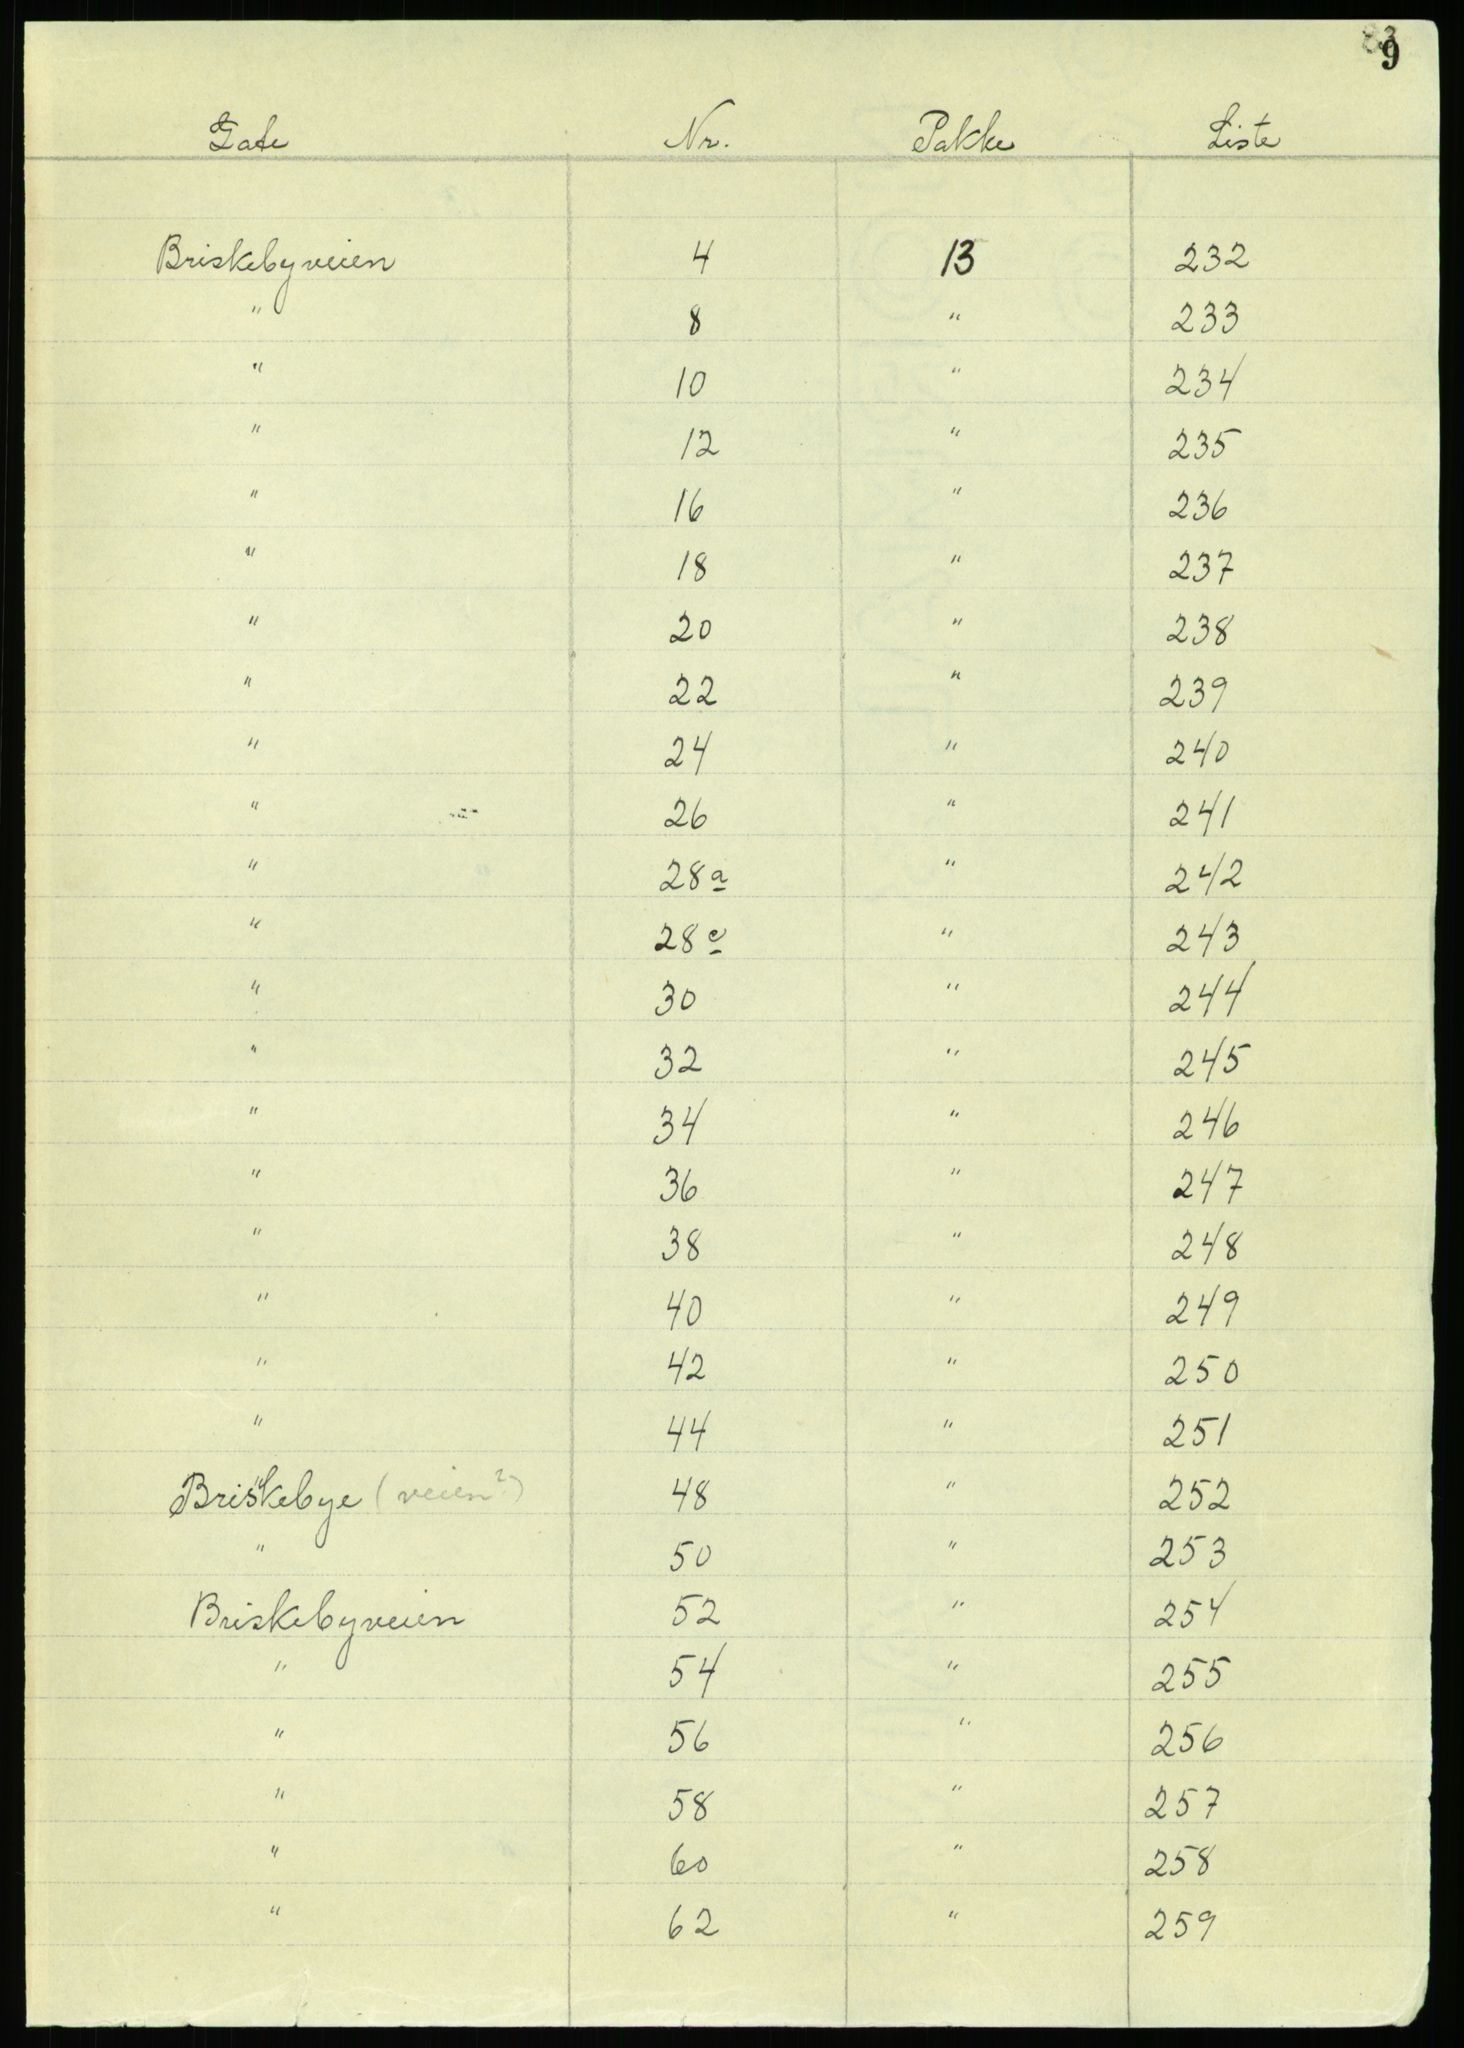 9
Gate Nr. Pakke Liste
Briskebyveien 4 13 232
" 8 " 233
" 10 " 234
" 12 " 235
" 16 " 236
" 18 " 237
" 20 " 238
" 22 " 239
" 24 " 240
" 26 " 241
" 28a " 242
" 28c " 243
" 30 " 244
" 32 " 245
" 34 " 246
" 36 " 247
" 38 " 248
" 40 " 249
" 42 " 250
" 44 " 251
Briskebye (veien?) 48 " 252
" 50 " 253
Briskebyveien 52 " 254
" 54 " 255
" 56 " 256
" 58 " 257
" 60 " 258
" 62 " 259